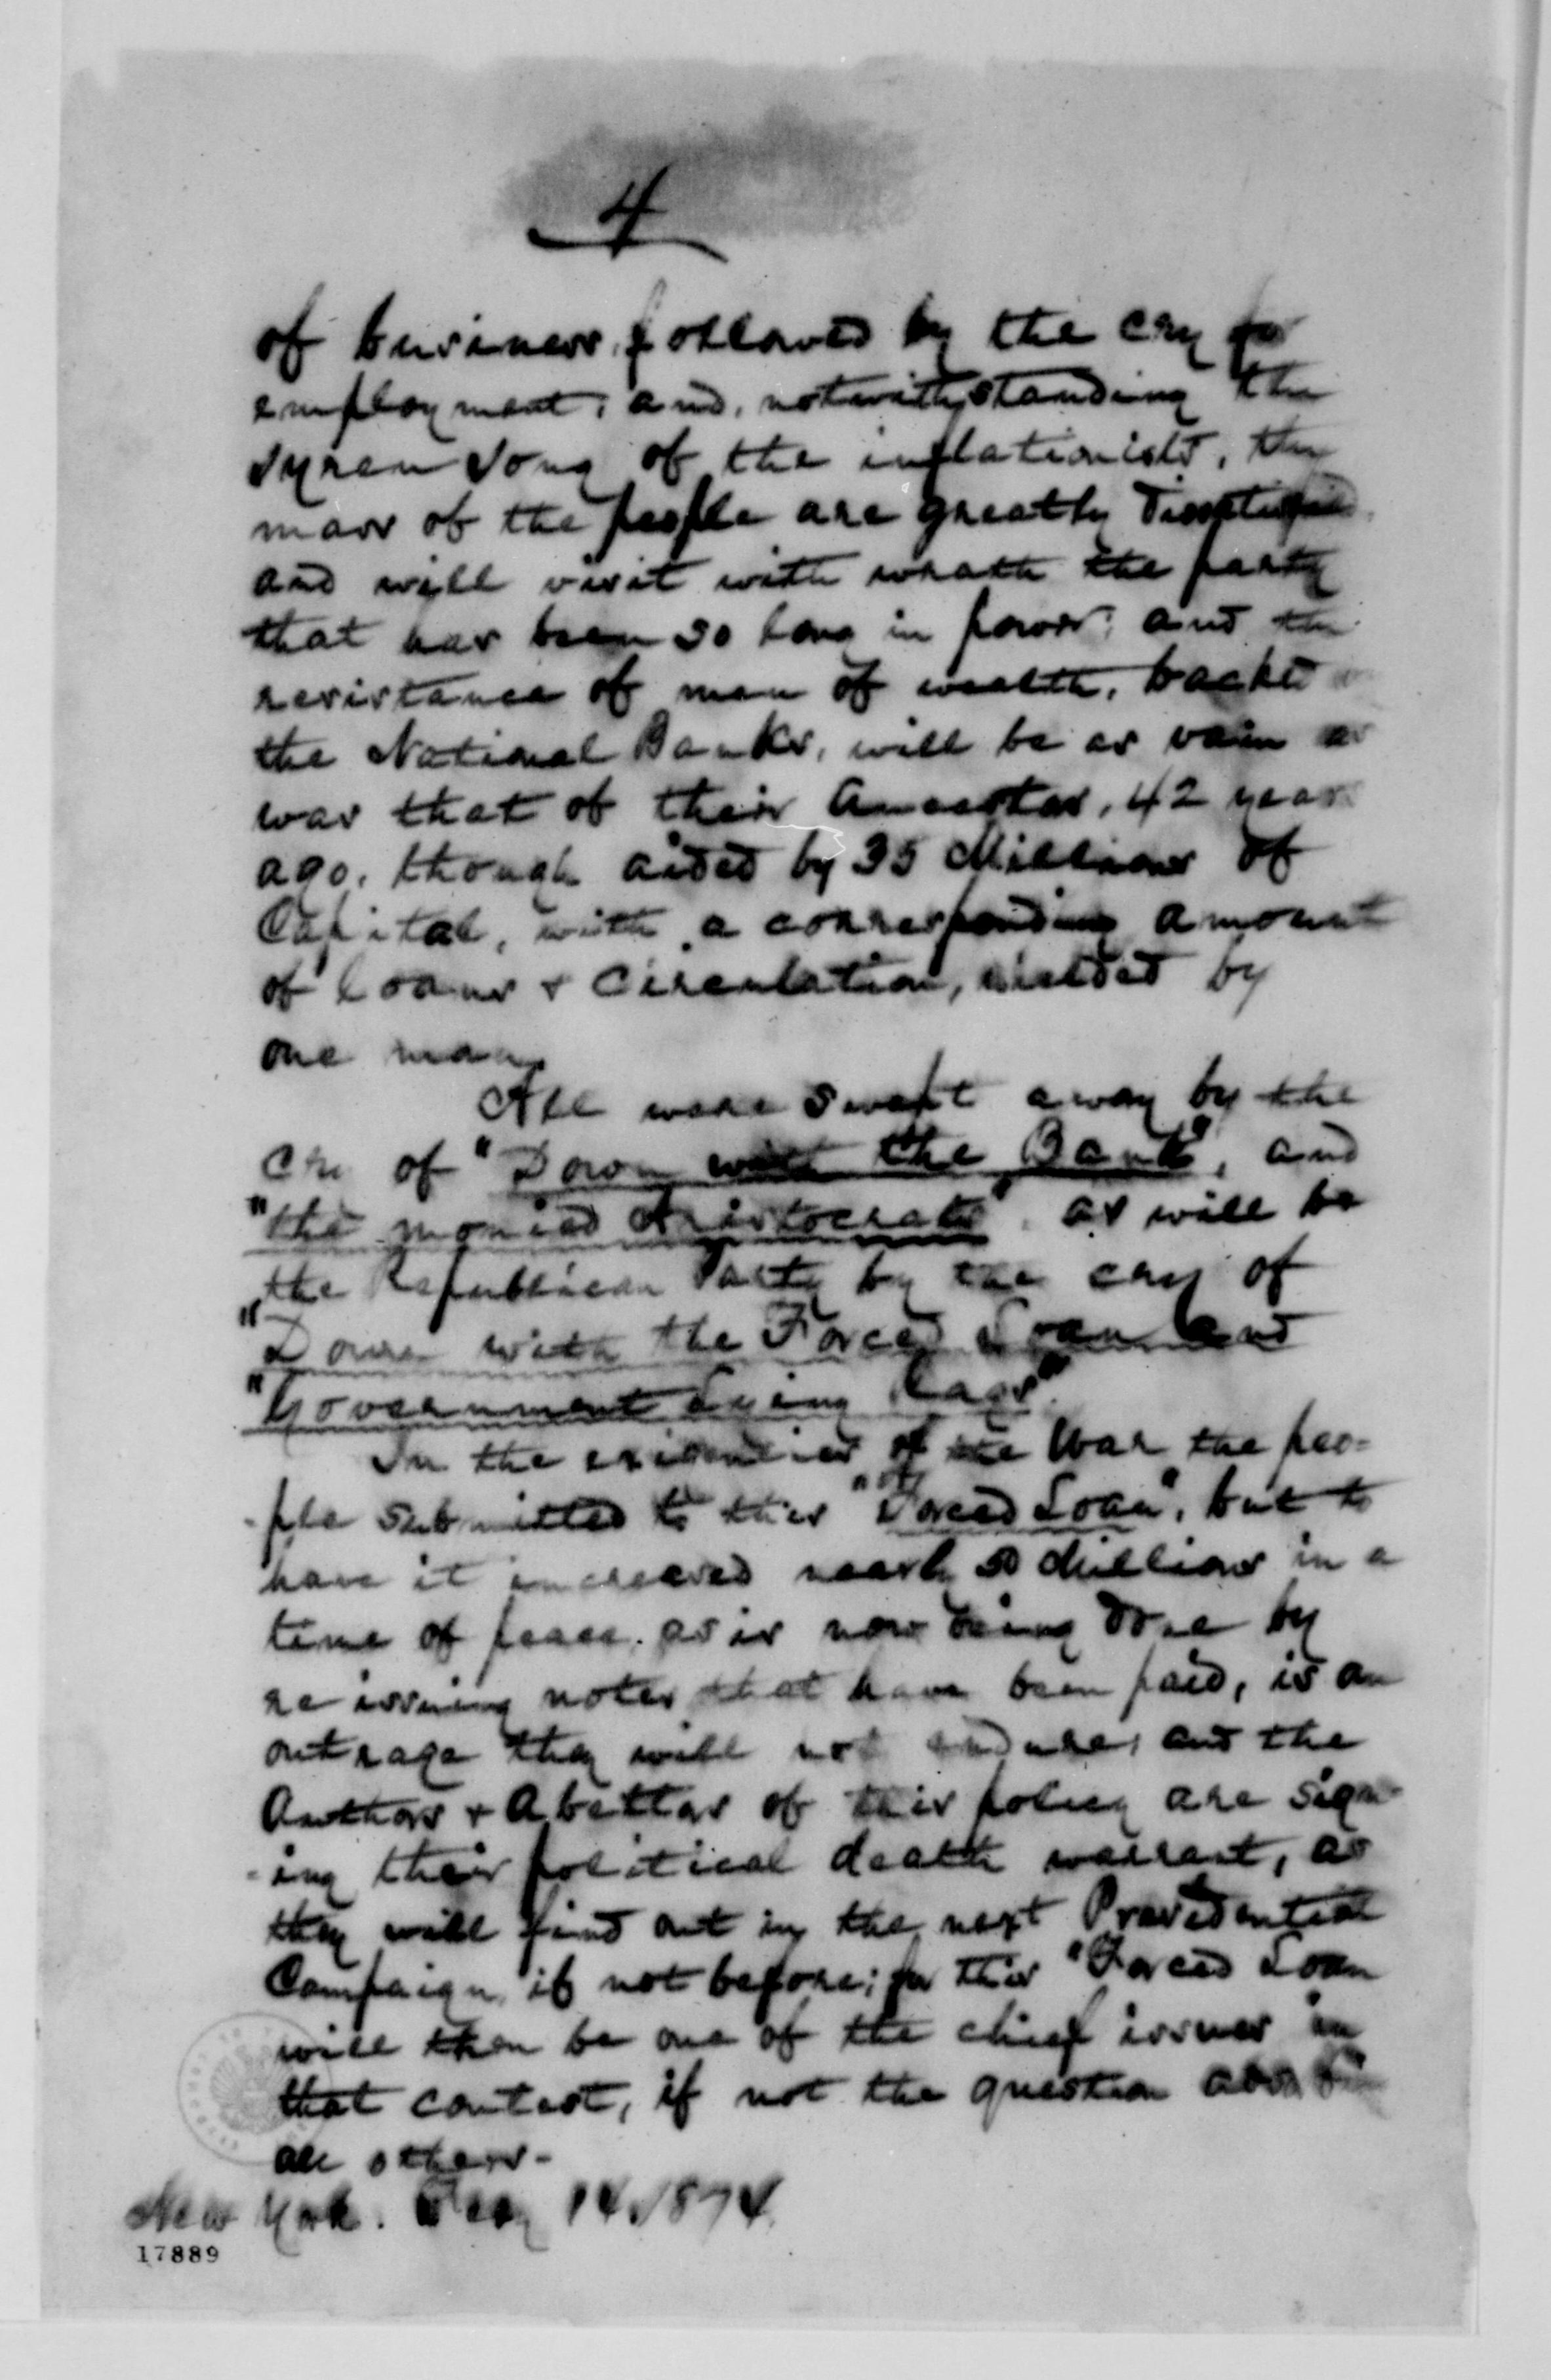 4
of business, followed by the cry for
employment; and, notwithstanding the
Syren Song of the inflationists, the
mass of the people are greatly dissatisfied
and will visit with wrath the party
that has been so long in power; and the
resistance of men of wealth, backed
the National Banks, will be as vain as
was that of their Ancestor, 42 years
ago, though aided by 35 Millions of
Capital, with a corresponding amount
of Loans & Circulation, wielded by
one man.
All were swept away by the
Cry of "Down with the Bank", and
"the monied Aristocrats", as will be
the Republican Party by the cry of
"Down with the Forced Loan and
"Government Lying Rags"
In the exigencies of the War the peo=
-ple submitted to this "Forced Loan", but to
have it increased nearly 50 Millions in a
time of peace, as is now being done by
re issuing notes that have been paid, is an
outrage they will not endure, and the
Authors & Abettors of this policy are sign
-ing their political death warrant, as
they will find out in the next Presidential
Campaign, if not before; for this "Forced Loan
will then be one of the chief issues in
that contest, if not the question above
all others-
New York. 14 1874.
17889